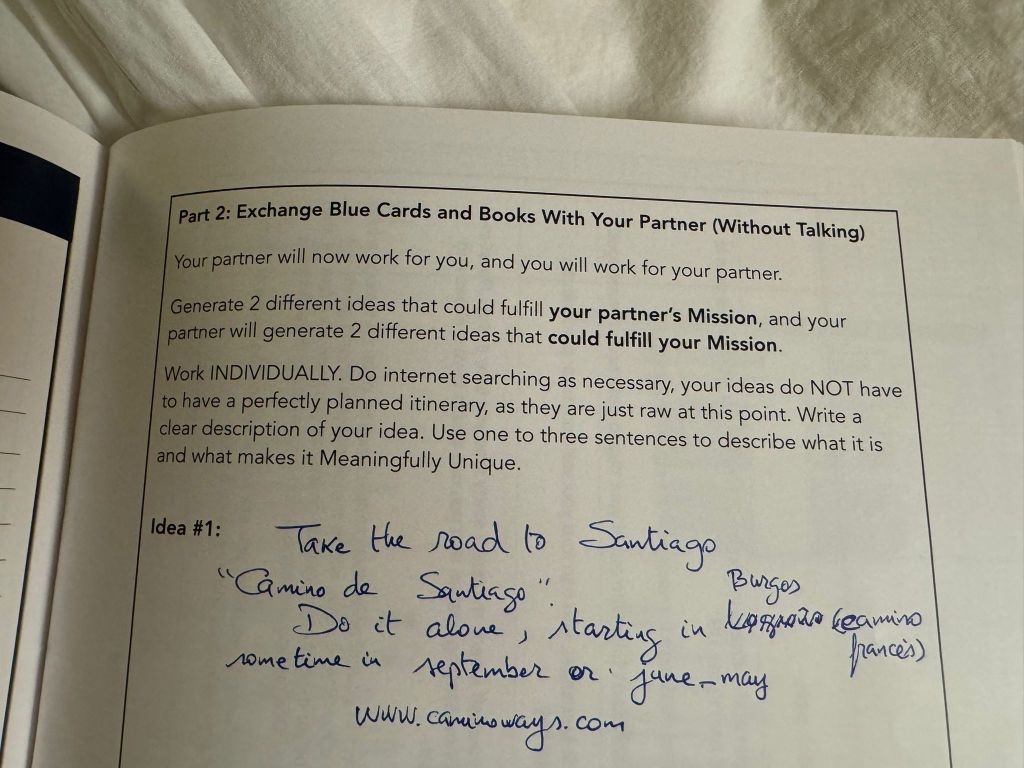 Part 2: Exchange Blue Cards and Books With Your Partner (Without Talking)
Your partner will now work for you, and you will work for your partner.
Generate 2 different ideas that could fulfill your partner's Mission, and your
partner will generate 2 different ideas that could fulfill your Mission.
Work INDIVIDUALLY. Do internet searching as necessary, your ideas do NOT have
to have a perfectly planned itinerary, as they are just raw at this point. Write a
clear description of your idea. Use one to three sentences to describe what it is
and what makes it Meaningfully Unique.
Idea #1: Take the road to Santiago
"Camino de Santiago".
Burgos
Do it alone, starting in (camino
francés)
sometime in september or june-may
www.caminoways.com